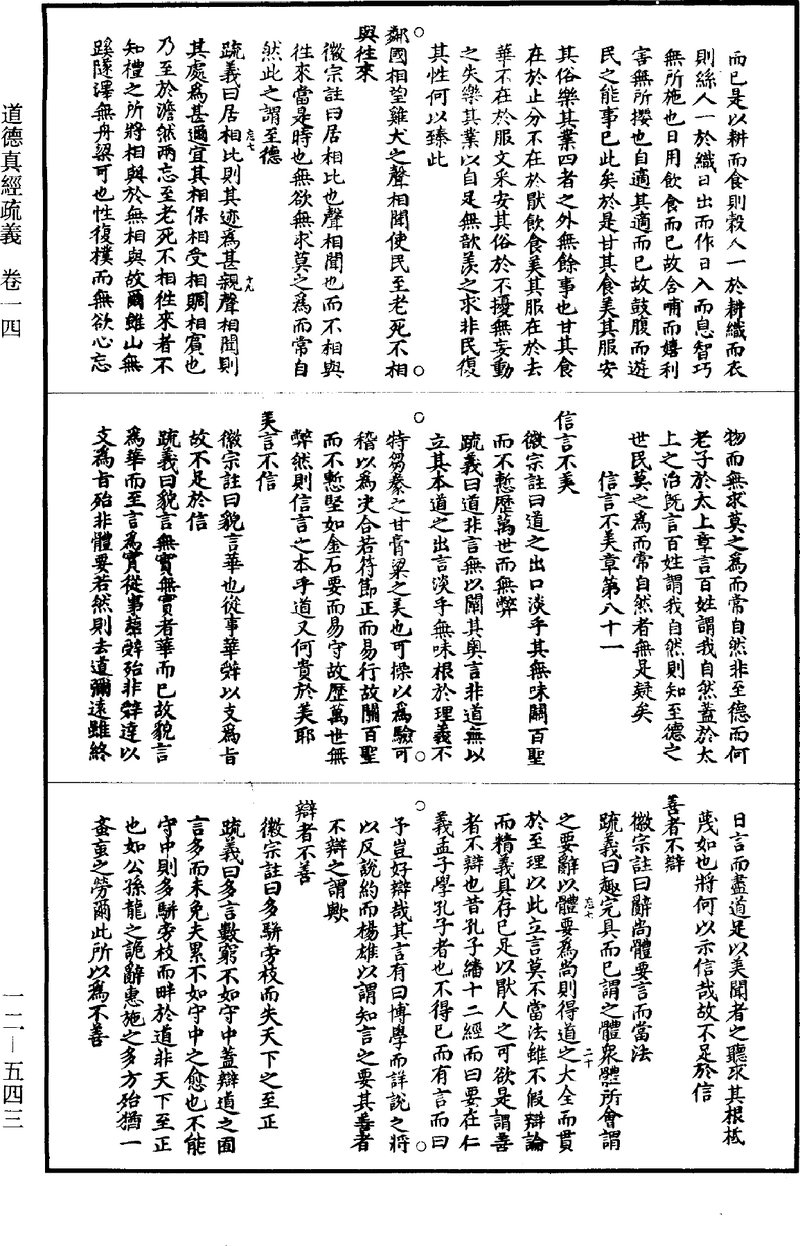 道德真經疏義　卷一四
一二—五四三
而已是以耕而食則穀人一於耕織而衣
則絲人一於織日出而作日入而息智巧
無所施也日用飲食而已故含哺而嬉利
害無所攖也自適其適而已故鼓腹而遊
民之能事已此矣於是甘其食美其服安
其俗樂其業四者之外無餘事也甘其食
在於止分不在於猒飲食美其服在於去
華不在於服文采安其俗於不擾無妄動
之失樂其業以自足無歆羨之求非民復
其性何以臻此
鄰國相望雞犬之聲相聞使民至老死不相
與往來
徽宗註曰居相比也聲相聞也而不相與
往來當是時也無欲無求莫之為而常自
然此之謂至德
疏義曰居相比則其迹為甚親聲相聞則
其處為甚邇宜其相保相受相賙相賓也
乃至於澹然兩忘至老死不相往來者不
知禮之所將相與於無相與故爾雖山無
蹊隧澤無舟梁可也性復樸而無欲心忘
物而無求莫之為而常自然非至德而何
老子於太上章言百姓謂我自然蓋於太
上之治既言百姓謂我自然則知至德之
世民莫之為而常自然者無是疑矣
信言不美章第八十一
信言不美
徽宗註曰道之出口淡乎其無味關百聖
而不慙歷萬世而無弊
疏義曰道非言無以闡其奧言非道無以
立其本道之出言淡乎無味根於理義不
特芻豢之甘膏粱之美也可操以為驗可
稽以為決合若符節正而易行故關百聖
而不慙堅如金石要而易守故歷萬世無
弊然則信言之本乎道又何貴於美耶
美言不信
徽宗註曰貌言華也從事華辭以支為旨
故不足於信
疏義曰貌言無實無實者華而已故貌言
為華而至言為實從事華辭殆非辭達以
支為旨殆非體要若然則去道彌遠雖終
日言而盡道是以美聞者之聽求其根柢
蔑如也將何以示信哉故不足於信
善者不辯
徽宗註曰辭尚體要言而當法
疏義曰趣完具而已謂之體衆體所會謂
之要辭以體要為尚則得道之大全而貫
於至理以此立言莫不當法雖不假辯論
而精義具存已足以猒人之可欲是謂善
者不辯也昔孔子繙十二經而曰要在仁
義孟子學孔子者也不得已而有言而曰
予豈好辯哉其言有曰博學而詳說之將
以反說約而楊雄以謂知言之要其善者
不辯之謂歟
辯者不善
徽宗註曰多駢旁枝而失天下之至正
疏義曰多言數窮不如守中蓋辯道之囿
言多而未免夫累不如守中之愈也不能
守中則多駢旁枝而畔於道非天下至正
也如公孫龍之詭辭惠施之多方殆猶一
蚉䖟之勞爾此所以為不善